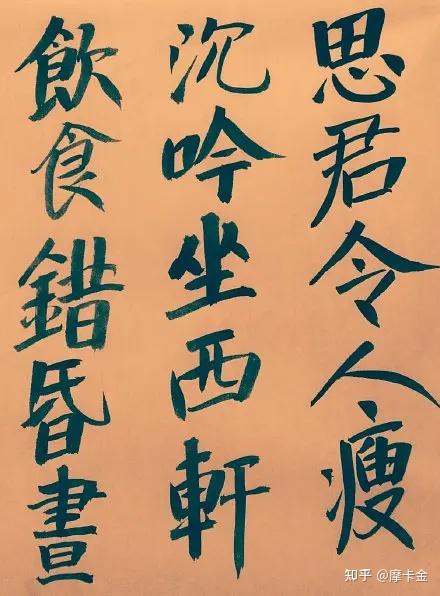 思君令人瘦
沉吟坐西軒
飲食錯昏晝
知乎 @摩卡金